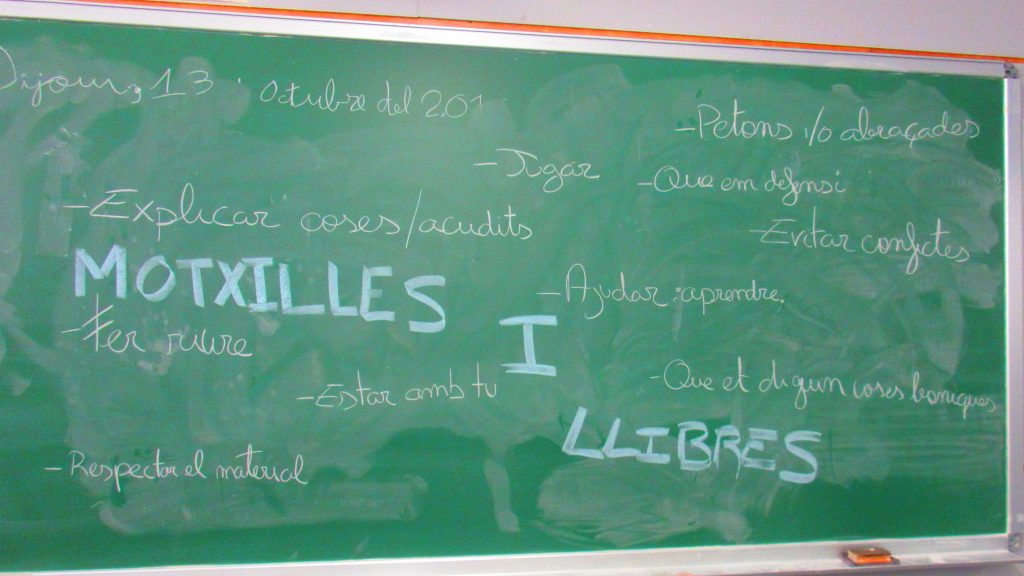 Dijous, 13 Octubre del 201
- Petons i/o abraçades
- Jugar
- Que em defensi
- Explicar coses/acudits
- Evitar conflictes
MOTXILLES
- Ajudar : aprendre.
- Fer riure
I
- Estar amb tu
- Que et diguin coses boniques
LLIBRES
- Respectar el material